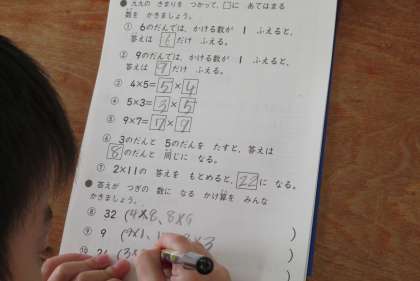 ● 九九の きまりを つかって、□に あてはまる
数を かきましょう。
① 6のだんでは、かける数が 1 ふえると、
答えは 6だけ ふえる。
② 9のだんでは、かける数が 1 ふえると、
答えは 9だけ ふえる。
③ 4×5=5×4
④ 5×3=3×5
⑤ 9×7=7×9
⑥ 3のだんと 5のだんを たすと、答えは
8のだんと 同じに なる。
⑦ 2×11の 答えを もとめると、22に なる。
● 答えが つぎの 数に なる かけ算を みんな
かきましょう。
⑧ 32 (4×8、8×4
⑨ 9 (9×1、 ×3 )
⑩ (3× )